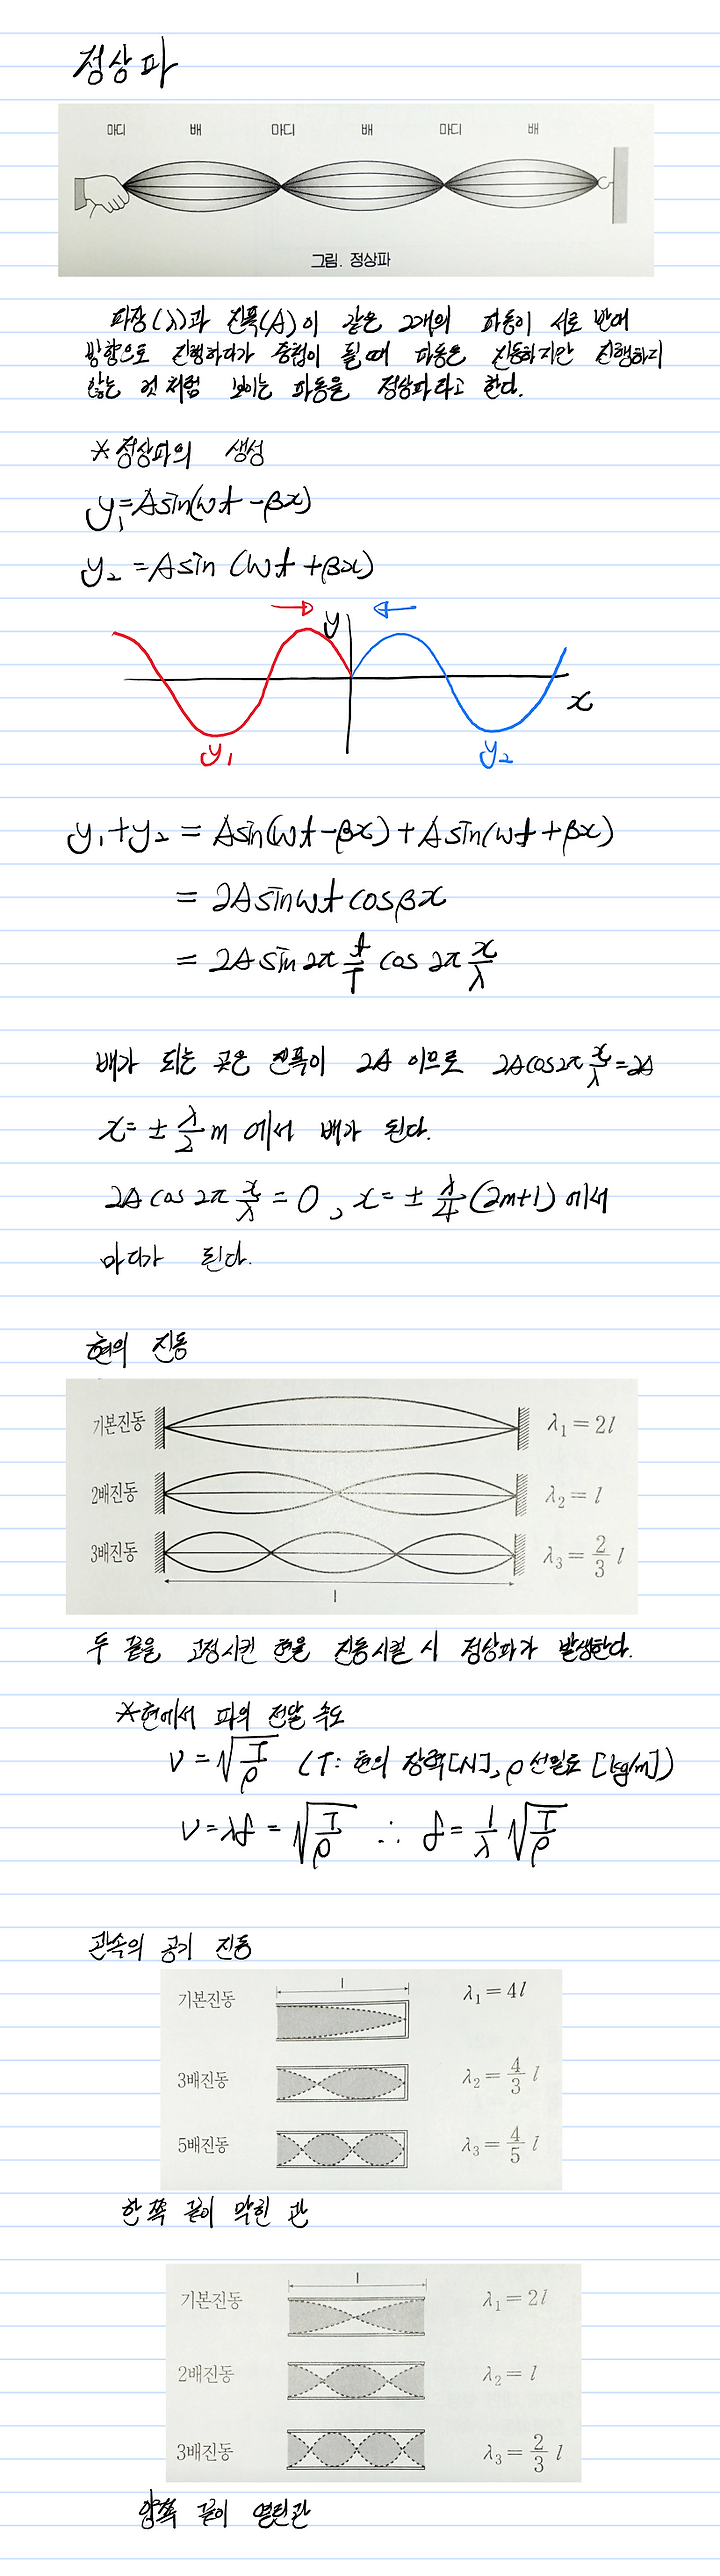 정상파
마디 배 마디 배 마디 배
그림. 정상파
파장(λ)과 진폭(A)이 같은 2개의 파동이 서로 반대
방향으로 진행하다가 중첩이 될 때 파동은 진동하지만 진행하지
않는 것 처럼 보이는 파동을 정상파라고 한다.
*정상파의 생성
y₁=Asin(ωt-βx)
y₂=Asin(ωt+βx)
y
x
y₁ y₂
y₁+y₂ = Asin(ωt-βx)+Asin(ωt+βx)
= 2Asinωt cosβx
= 2A sin 2π t/T cos 2π x/λ
배가 되는 곳은 진폭이 2A 이므로 2Acos2π x/λ=2A
x=± λ/2 m 에서 배가 된다.
2A cos 2π x/λ = 0, x=± λ/4 (2m+1) 에서
마디가 된다.
현의 진동
기본진동 λ₁=2l
2배진동 λ₂=l
3배진동 λ₃=2/3 l
l
두 끝을 고정시킨 현을 진동시킬 시 정상파가 발생한다.
*현에서 파의 전달 속도
v=√(T/ρ) (T: 현의 장력[N], ρ 선밀도 [kg/m])
v=λf=√(T/ρ) ∴ f=1/λ √(T/ρ)
관속의 공기 진동
l
기본진동 λ₁=4l
3배진동 λ₂=4/3 l
5배진동 λ₃=4/5 l
한 쪽 끝이 막힌 관
l
기본진동 λ₁=2l
2배진동 λ₂=l
3배진동 λ₃=2/3 l
양쪽 끝이 열린관